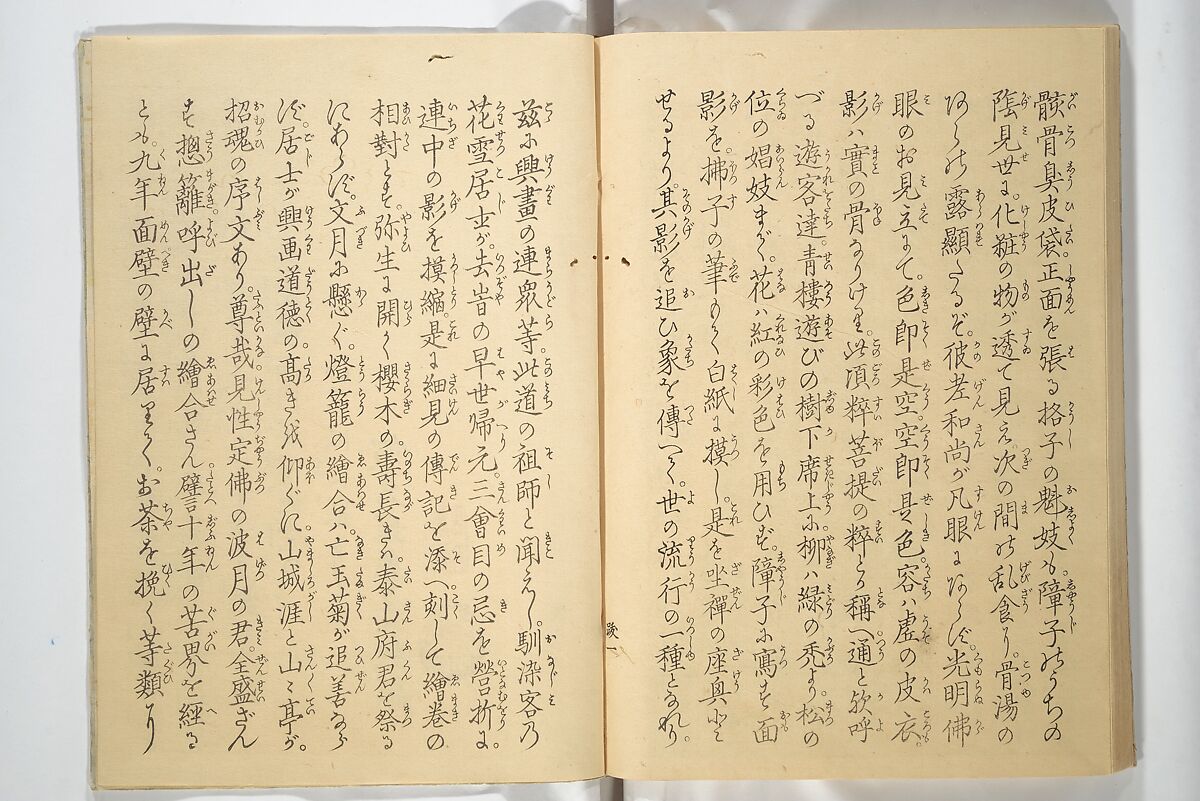 骸骨臭皮袋。正面を張る格子の魁妓も。障子のうちの
陰見世に。化粧の物が透て見え。次の間の乱食り。骨湯の
あらの露顕たるぞ。彼左和尚が凡眼にあらず。光明佛
眼のお見立にて。色即是空。空即是色。容ハ虚の皮衣。
影ハ實の骨なりけり。此頃粋菩提の粋と稱へ通と欤呼
づる遊客達。青樓遊びの樹下席上に柳ハ緑の禿より。松の
位の娼妓まで。花ハ紅の彩色を用ひず。障子に寫す面
影を。拂子の筆もて白紙に摸し。是を坐禪の座興とと
せるより。其影を追ひ象を傳へて。世の流行の一種となれり。
跋一
茲に興畫の連衆等。此道の祖師と聞えし。馴染客乃
花雪居士が。去岀の早世帰元。三會目の忌を營折に。
連中の影を摸縮。是に細見の傳記を添へ刻して繪巻の
相對とす。弥生に開く櫻木の。壽長きハ。泰山府君を祭る
にあらず。文月に懸ぐ。燈籠の繪合ハ。亡玉菊が追善なら
ず。居士が興画道徳の。髙きを仰ぐに。山城涯と山々亭が。
招魂の序文あり。尊哉見性定佛の波月の君。全盛ざん
す。摠籬呼出しの繪合さん。譬十年の苦界を經る
とも。九年面壁の壁に居りて。お茶を挽く等類なり